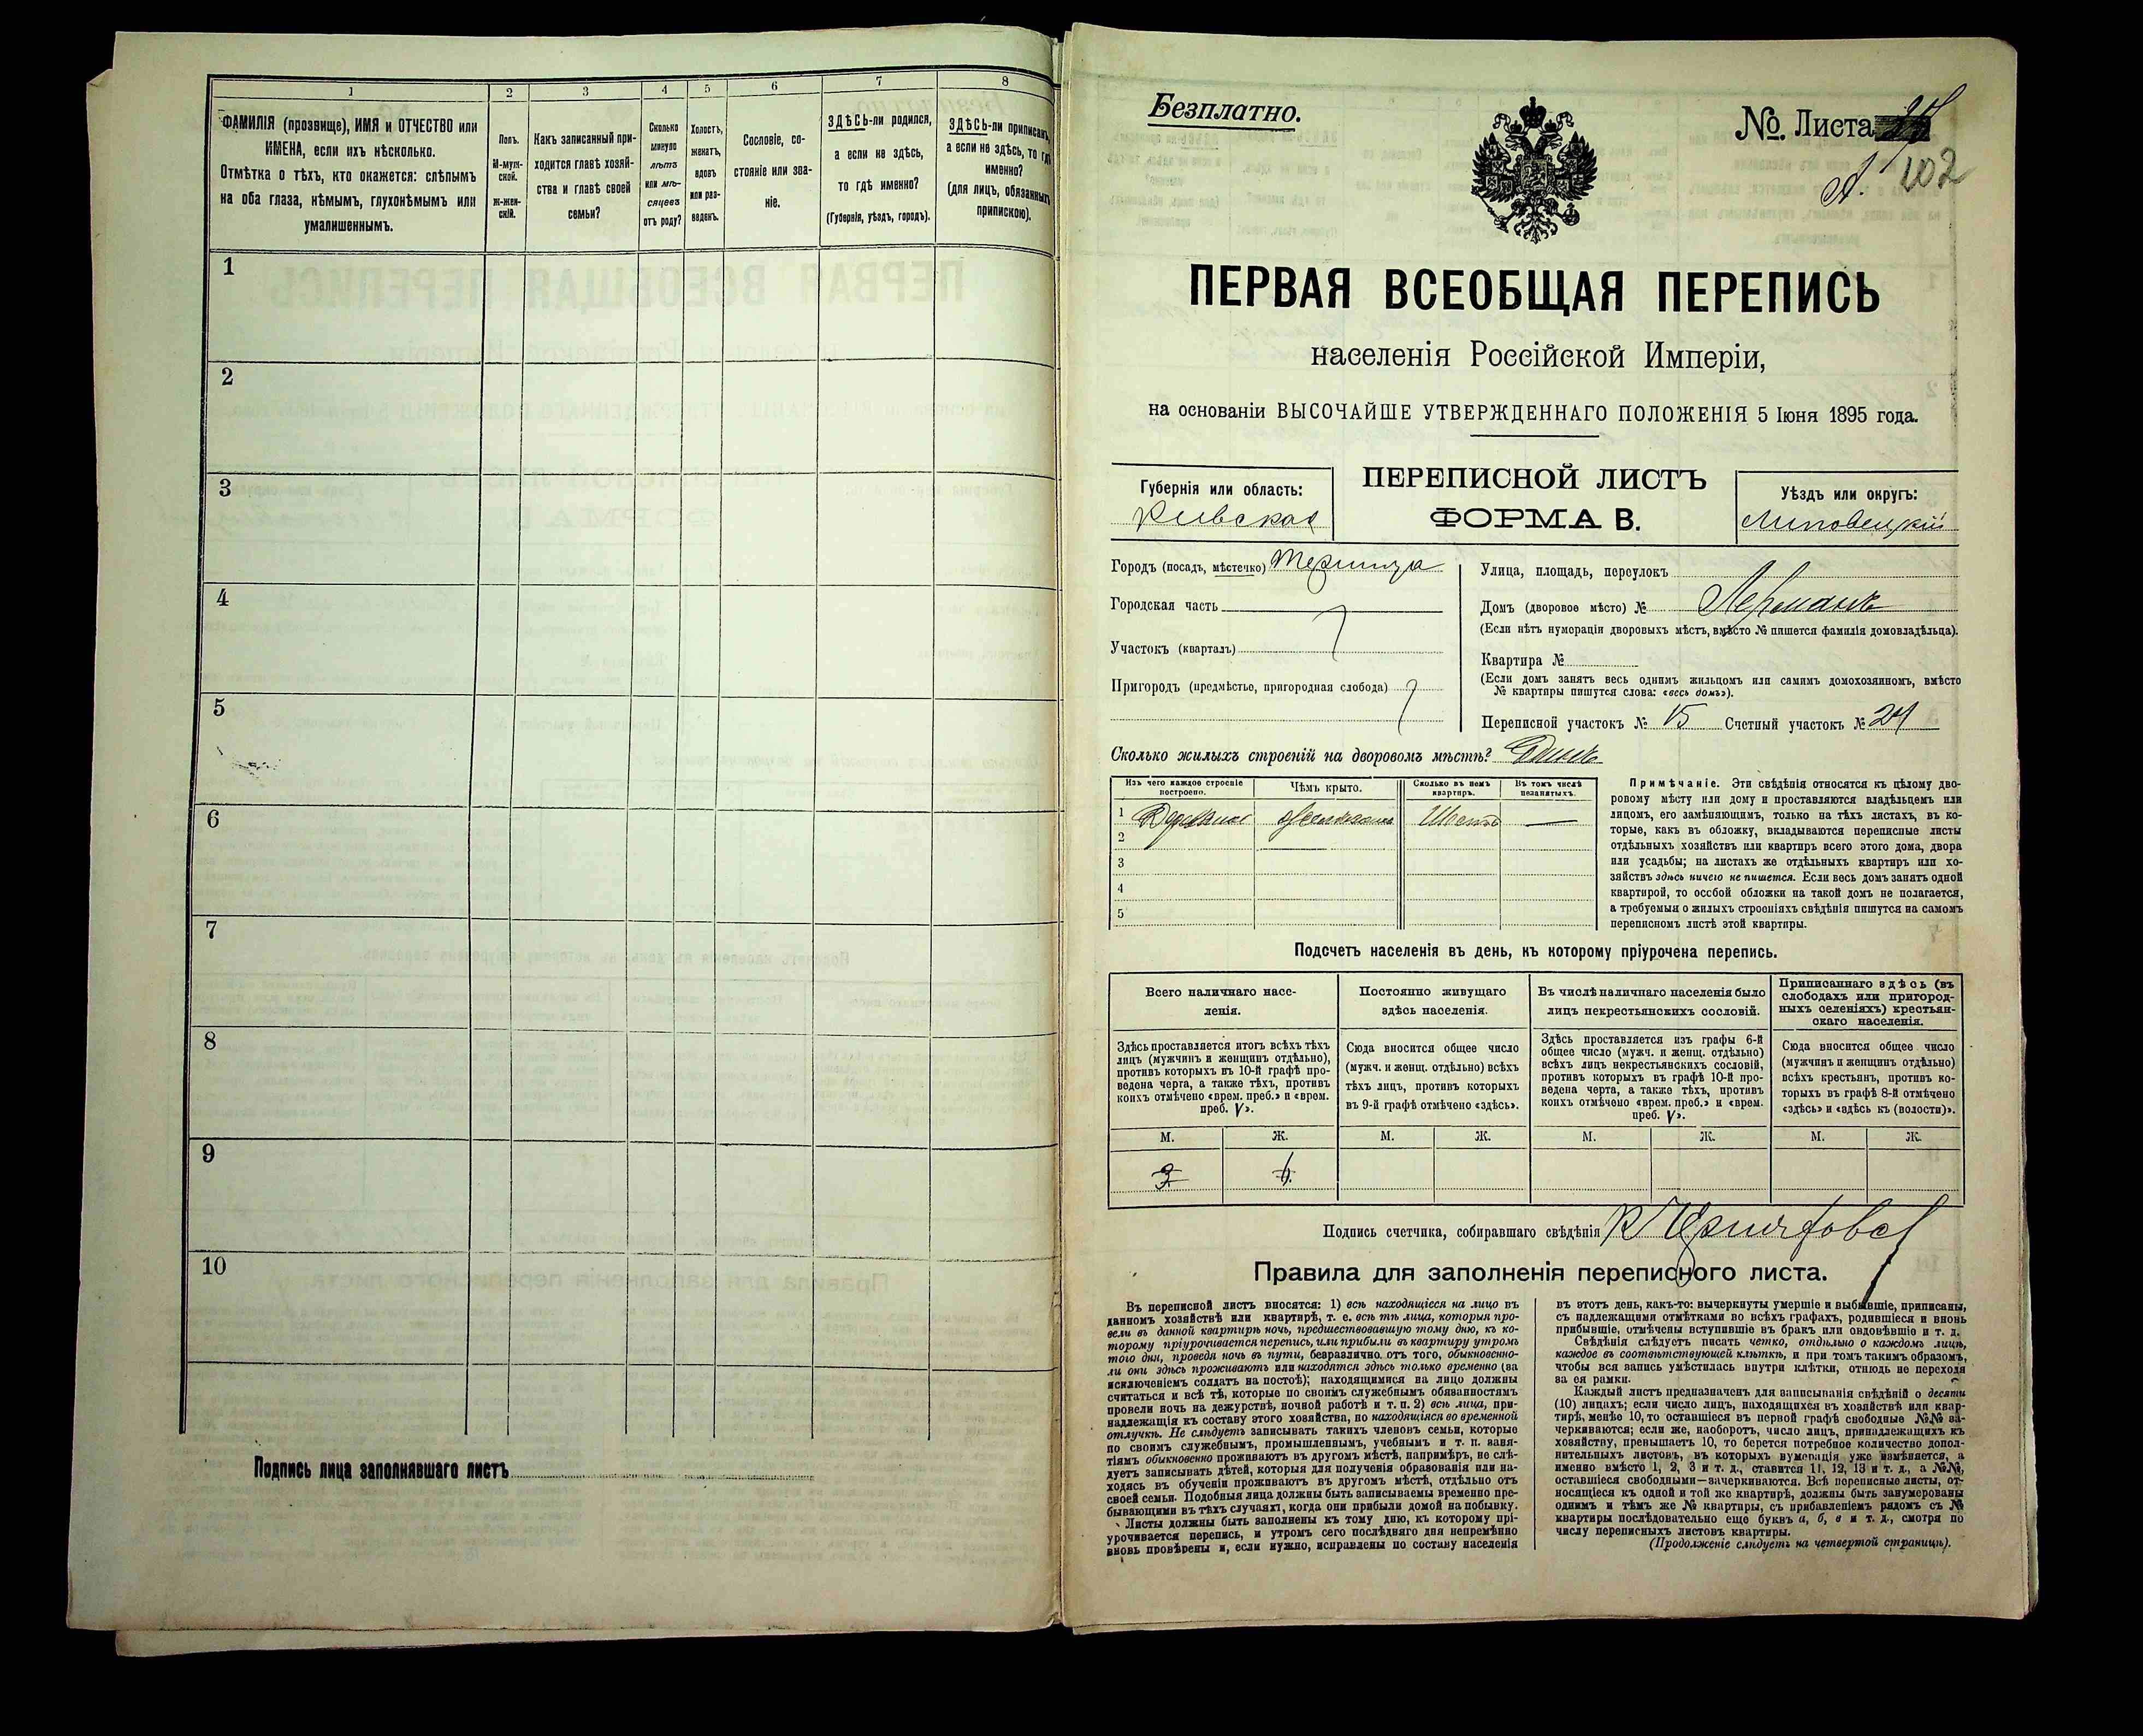 1
2
3
4
5
6
7
8
ФАМИЛІЯ (прозвище), ИМЯ и ОТЧЕСТВО или
ИМЕНА, если ихъ нѣсколько.
Отмѣтка о тѣхъ, кто окажется: слѣпымъ
на оба глаза, нѣмымъ, глухонѣмымъ или
умалишеннымъ.
Полъ.
М-муж-
ской.
Ж-жен-
скій.
Какъ записанный при-
ходится главѣ хозяй-
ства и главѣ своей
семьи?
Сколько
минуло
лѣтъ
или мѣ-
сяцевъ
отъ роду?
Холостъ,
женатъ,
вдовъ
или раз-
веденъ.
Сословіе, со-
стояніе или зва-
ніе.
ЗДѢСЬ-ли родился,
а если не здѣсь,
то гдѣ именно?
(Губернія, уѣздъ, городъ).
ЗДѢСЬ-ли приписанъ,
а если не здѣсь, то гдѣ
именно?
(для лицъ, обязанныхъ
припискою).
1
2
3
4
5
6
7
8
9
10
Подпись лица заполнявшаго листъ
Безплатно.
№. Листа
102
ПЕРВАЯ ВСЕОБЩАЯ ПЕРЕПИСЬ
населенія Россійской Имперіи,
на основаніи ВЫСОЧАЙШЕ УТВЕРЖДЕННАГО ПОЛОЖЕНІЯ 5 Іюня 1895 года.
Губернія или область:
Кіевская
ПЕРЕПИСНОЙ ЛИСТЪ
ФОРМА В.
Уѣздъ или округъ:
Липовецкій
Городъ (посадъ, мѣстечко)
Городская часть
Участокъ (кварталъ)
Пригородъ (предмѣстье, пригородная слобода)
Улица, площадь, переулокъ
Домъ (дворовое мѣсто) № Лерманъ
(Если нѣтъ нумераціи дворовыхъ мѣстъ, вмѣсто № пишется фамилія домовладѣльца).
Квартира №
(Если домъ занятъ весь однимъ жильцомъ или самимъ домохозяиномъ, вмѣсто
№ квартиры пишутся слова: «весь домъ»).
Переписной участокъ № 15 Счетный участокъ №
Сколько жилыхъ строеній на дворовомъ мѣстѣ? Одинъ
Изъ чего каждое строеніе
построено.
Чѣмъ крыто.
Сколько въ немъ
квартиръ.
Въ томъ числѣ
незанятыхъ.
1 Шесть —
2
3
4
5
Примѣчаніе. Эти свѣдѣнія относятся къ цѣлому дво-
ровому мѣсту или дому и проставляются владѣльцемъ или
лицомъ, его замѣняющимъ, только на тѣхъ листахъ, въ ко-
торые, какъ въ обложку, вкладываются переписные листы
отдѣльныхъ хозяйствъ или квартиръ всего этого дома, двора
или усадьбы; на листахъ же отдѣльныхъ квартиръ или хо-
зяйствъ здѣсь ничего не пишется. Если весь домъ занятъ одной
квартирой, то особой обложки на такой домъ не полагается,
а требуемыя о жилыхъ строеніяхъ свѣдѣнія пишутся на самомъ
переписномъ листѣ этой квартиры.
Подсчетъ населенія въ день, къ которому пріурочена перепись.
Всего наличнаго насе-
ленія.
Постоянно живущаго
здѣсь населенія.
Въ числѣ наличнаго населенія было
лицъ некрестьянскихъ сословій.
Приписаннаго здѣсь (въ
слободахъ или пригород-
ныхъ селеніяхъ) крестьян-
скаго населенія.
Здѣсь проставляется итогъ всѣхъ тѣхъ
лицъ (мужчинъ и женщинъ отдѣльно),
противъ которыхъ въ 10-й графѣ про-
ведена черта, а также тѣхъ, противъ
коихъ отмѣчено «врем. преб.» и «врем.
преб. V».
Сюда вносится общее число
(мужч. и женщ. отдѣльно) всѣхъ
тѣхъ лицъ, противъ которыхъ
въ 9-й графѣ отмѣчено «здѣсь».
Здѣсь проставляется изъ графы 6-й
общее число (мужч. и женщ. отдѣльно)
всѣхъ лицъ некрестьянскихъ сословій,
противъ которыхъ въ графѣ 10-й про-
ведена черта, а также тѣхъ, противъ
коихъ отмѣчено «врем. преб.» и «врем.
преб. V».
Сюда вносится общее число
(мужчинъ и женщинъ отдѣльно)
всѣхъ крестьянъ, противъ ко-
торыхъ въ графѣ 8-й отмѣчено
«здѣсь» и «здѣсь къ (волости)».
М. Ж. М. Ж. М. Ж. М. Ж.
3
Подпись счетчика, собиравшаго свѣдѣнія
Правила для заполненія переписного листа.
Въ переписной листъ вносятся: 1) всѣ находящіеся на лицо въ
данномъ хозяйствѣ или квартирѣ, т. е. всѣ тѣ лица, которыя про-
вели въ данной квартирѣ ночь, предшествовавшую тому дню, къ ко-
торому пріурочивается перепись, или прибыли въ квартиру утромъ
того дня, проведя ночь въ пути, безразлично отъ того, обыкновенно-
ли они здѣсь проживаютъ или находятся здѣсь только временно (за
исключеніемъ солдатъ на постоѣ); находящимися на лицо должны
считаться и всѣ тѣ, которые по своимъ служебнымъ обязанностямъ
провели ночь на дежурствѣ, ночной работѣ и т. п. 2) всѣ лица, при-
надлежащія къ составу этого хозяйства, но находящіяся во временной
отлучкѣ. Не слѣдуетъ записывать такихъ членовъ семьи, которые
по своимъ служебнымъ, промышленнымъ, учебнымъ и т. п. заня-
тіямъ обыкновенно проживаютъ въ другомъ мѣстѣ, напримѣръ, не слѣ-
дуетъ записывать дѣтей, которыя для полученія образованія или на-
ходясь въ обученіи проживаютъ въ другомъ мѣстѣ, отдѣльно отъ
своей семьи. Подобныя лица должны быть записываемы временно пре-
бывающими въ тѣхъ случаяхъ, когда они прибыли домой на побывку.
Листы должны быть заполнены къ тому дню, къ которому прі-
урочивается перепись, и утромъ сего послѣдняго дня непремѣнно
вновь провѣрены и, если нужно, исправлены по составу населенія
въ этотъ день, какъ-то: вычеркнуты умершіе и выбывшіе, приписаны,
съ надлежащими отмѣтками во всѣхъ графахъ, родившіеся и вновь
прибывшіе, отмѣчены вступившіе въ бракъ или овдовѣвшіе и т. д.
Свѣдѣнія слѣдуетъ писать четко, отдѣльно о каждомъ лицѣ,
каждое въ соотвѣтствующей клѣткѣ, и при томъ такимъ образомъ,
чтобы вся запись умѣстилась внутри клѣтки, отнюдь не переходя
за ея рамки.
Каждый листъ предназначенъ для записыванія свѣдѣній о десяти
(10) лицахъ; если число лицъ, находящихся въ хозяйствѣ или квар-
тирѣ, менѣе 10, то оставшіеся въ первой графѣ свободные №№ за-
черкиваются; если же, наоборотъ, число лицъ, принадлежащихъ къ
хозяйству, превышаетъ 10, то берется потребное количество допол-
нительныхъ листовъ, въ которыхъ нумерація уже измѣняется, а
именно вмѣсто 1, 2, 3 и т. д., ставится 11, 12, 13 и т. д., а №№,
оставшіеся свободными—зачеркиваются. Всѣ переписные листы, от-
носящіеся къ одной и той же квартирѣ, должны быть занумерованы
однимъ и тѣмъ же № квартиры, съ прибавленіемъ рядомъ съ №
квартиры послѣдовательно еще буквъ а, б, в и т. д., смотря по
числу переписныхъ листовъ квартиры.
(Продолженіе слѣдуетъ на четвертой страницѣ).